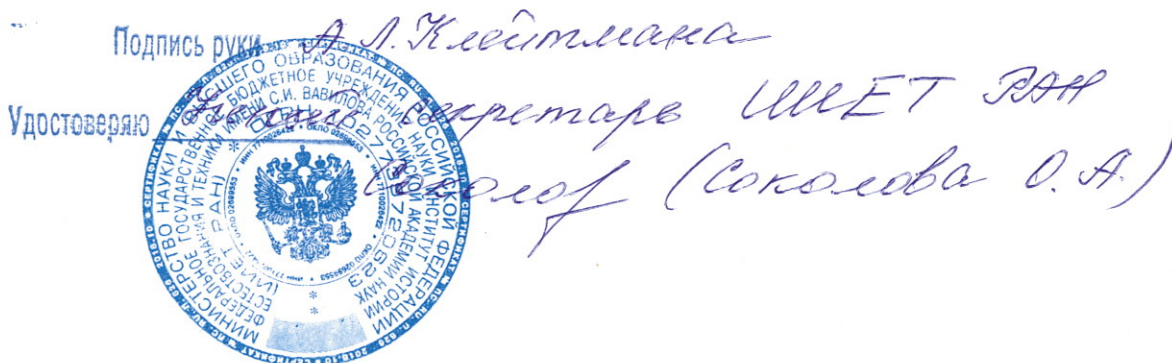 Подпись руки А Л. Клейтмана
Удостоверяю Ученый секретарь ИИЕТ РАН
(Соколова О. А.)
МИНИСТЕРСТВО НАУКИ И ВЫСШЕГО ОБРАЗОВАНИЯ РОССИЙСКОЙ ФЕДЕРАЦИИ
ФЕДЕРАЛЬНОЕ ГОСУДАРСТВЕННОЕ БЮДЖЕТНОЕ УЧРЕЖДЕНИЕ НАУКИ ИНСТИТУТ ИСТОРИИ
ЕСТЕСТВОЗНАНИЯ И ТЕХНИКИ ИМЕНИ С.И. ВАВИЛОВА РОССИЙСКОЙ АКАДЕМИИ НАУК
(ИИЕТ РАН)